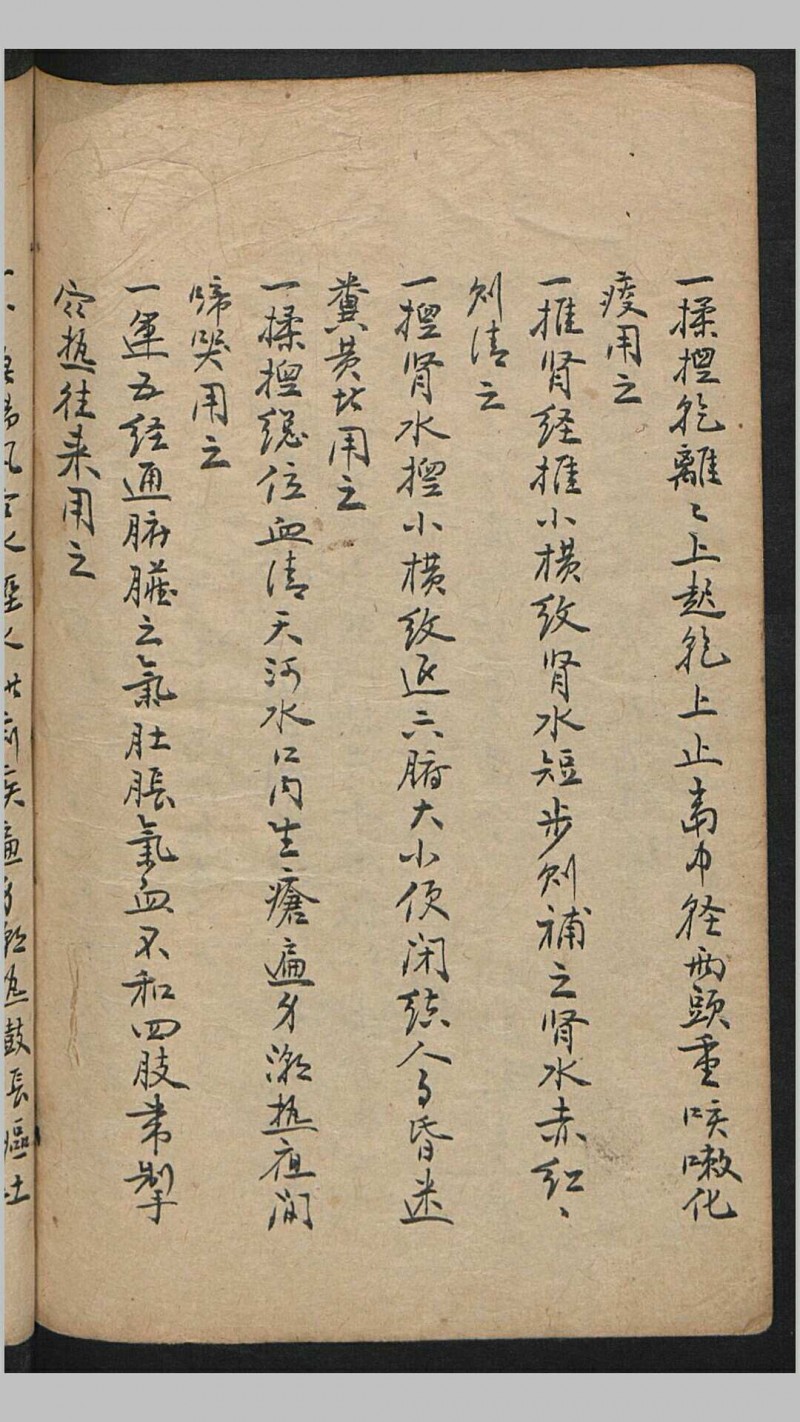 一揉揑乾離〻上起乾上止离中径两頭重咳嗽化
痰用之
一推肾经推小横纹肾水短步则補之肾水赤红〻
则清之
一揑肾水揑小横纹退六腑大小便闭结人事昏迷
糞黄者用之
一揉揑總位血清天河水口内生瘡遍身潮热夜间
啼哭用之
一運五经通腑臟之氣肚脹氣血不和四肢常掣
寒热往来用之